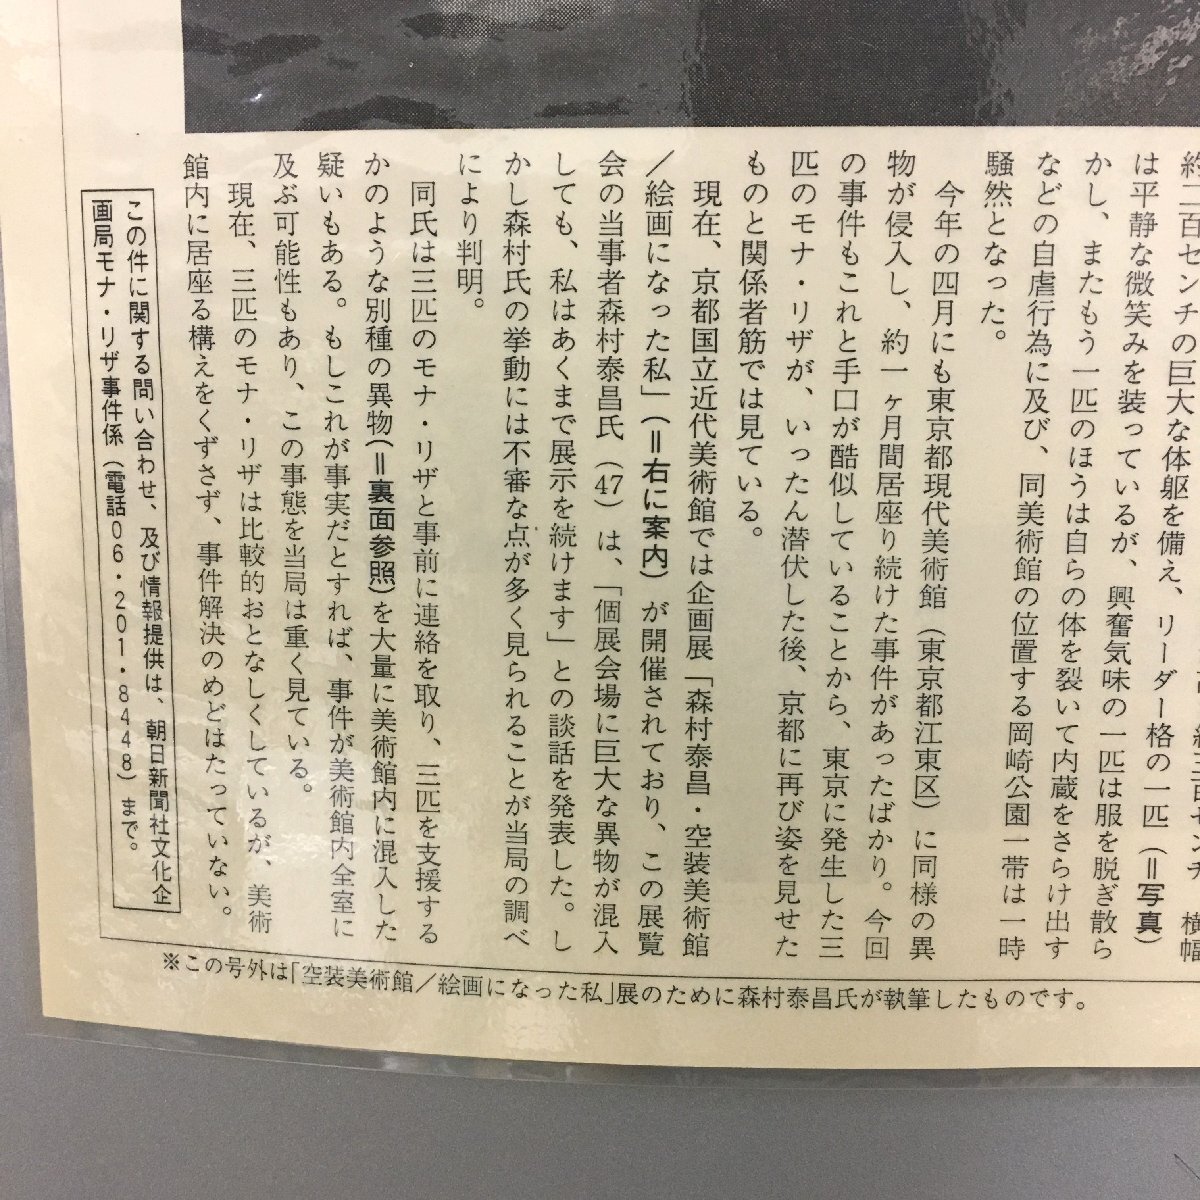 センチの巨大な体躯を備え、リーダー格の一匹(=写真)
は平静な微笑みを装っているが、興奮気味の一匹は服を脱ぎ散ら
かし、またもう一匹のほうは自らの体を裂いて内蔵をさらけ出す
などの自虐行為に及び、同美術館の位置する岡崎公園一帯は一時
騒然となった。
今年の四月にも東京都現代美術館(東京都江東区)に同様の異
物が侵入し、約一ヶ月間居座り続けた事件があったばかり。今回
の事件もこれと手口が酷似していることから、東京に発生した三
匹のモナ・リザが、いったん潜伏した後、京都に再び姿を見せた
ものと関係者筋では見ている。
現在、京都国立近代美術館では企画展「森村泰昌・空装美術館
/絵画になった私」(=右に案内)が開催されており、この展覧
会の当事者森村泰昌氏(47)は、「個展会場に巨大な異物が混入
しても、私はあくまで展示を続けます」との談話を発表した。し
かし森村氏の挙動には不審な点が多く見られることが当局の調べ
により判明。
同氏は三匹のモナ・リザと事前に連絡を取り、三匹を支援する
かのような別種の異物(=裏面参照)を大量に美術館内に混入した
疑いもある。もしこれが事実だとすれば、事件が美術館内全室に
及ぶ可能性もあり、この事態を当局は重く見ている。
現在、三匹のモナ・リザは比較的おとなしくしているが、美術
館内に居座る構えをくずさず、事件解決のめどはたっていない。
この件に関する問い合わせ、及び情報提供は、朝日新聞社文化企
画局モナ・リザ事件係(電話06・201・8448)まで。
※この号外は「空装美術館/絵画になった私」展のために森村泰昌氏が執筆したものです。